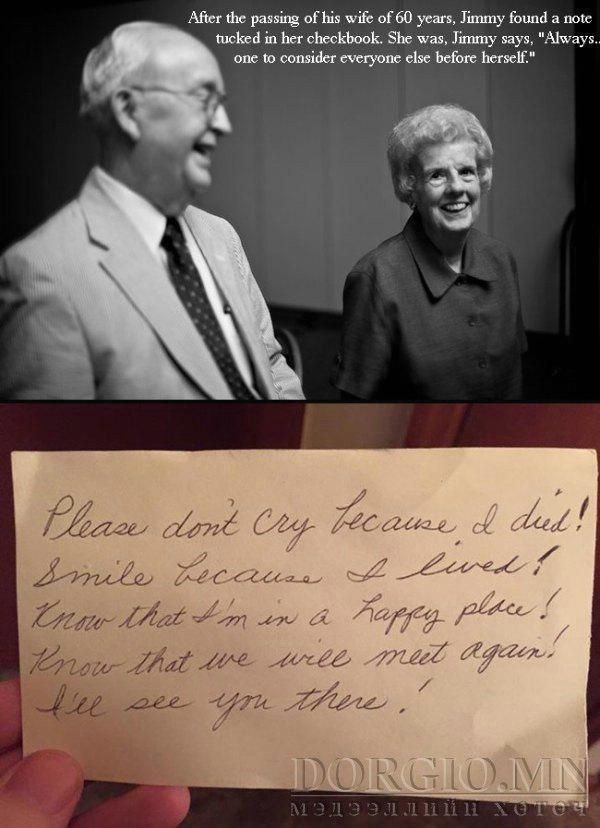 After the passing of his wife of 60 years, Jimmy found a note
tucked in her checkbook. She was, Jimmy says, "Always..
one to consider everyone else before herself."
Please don't cry because I died!
Smile because I lived!
Know that I'm in a happy place!
Know that we will meet again!
I'll see you there!
DORGIO.MN
МЭДЭЭЛЛИЙН ХӨТӨЧ